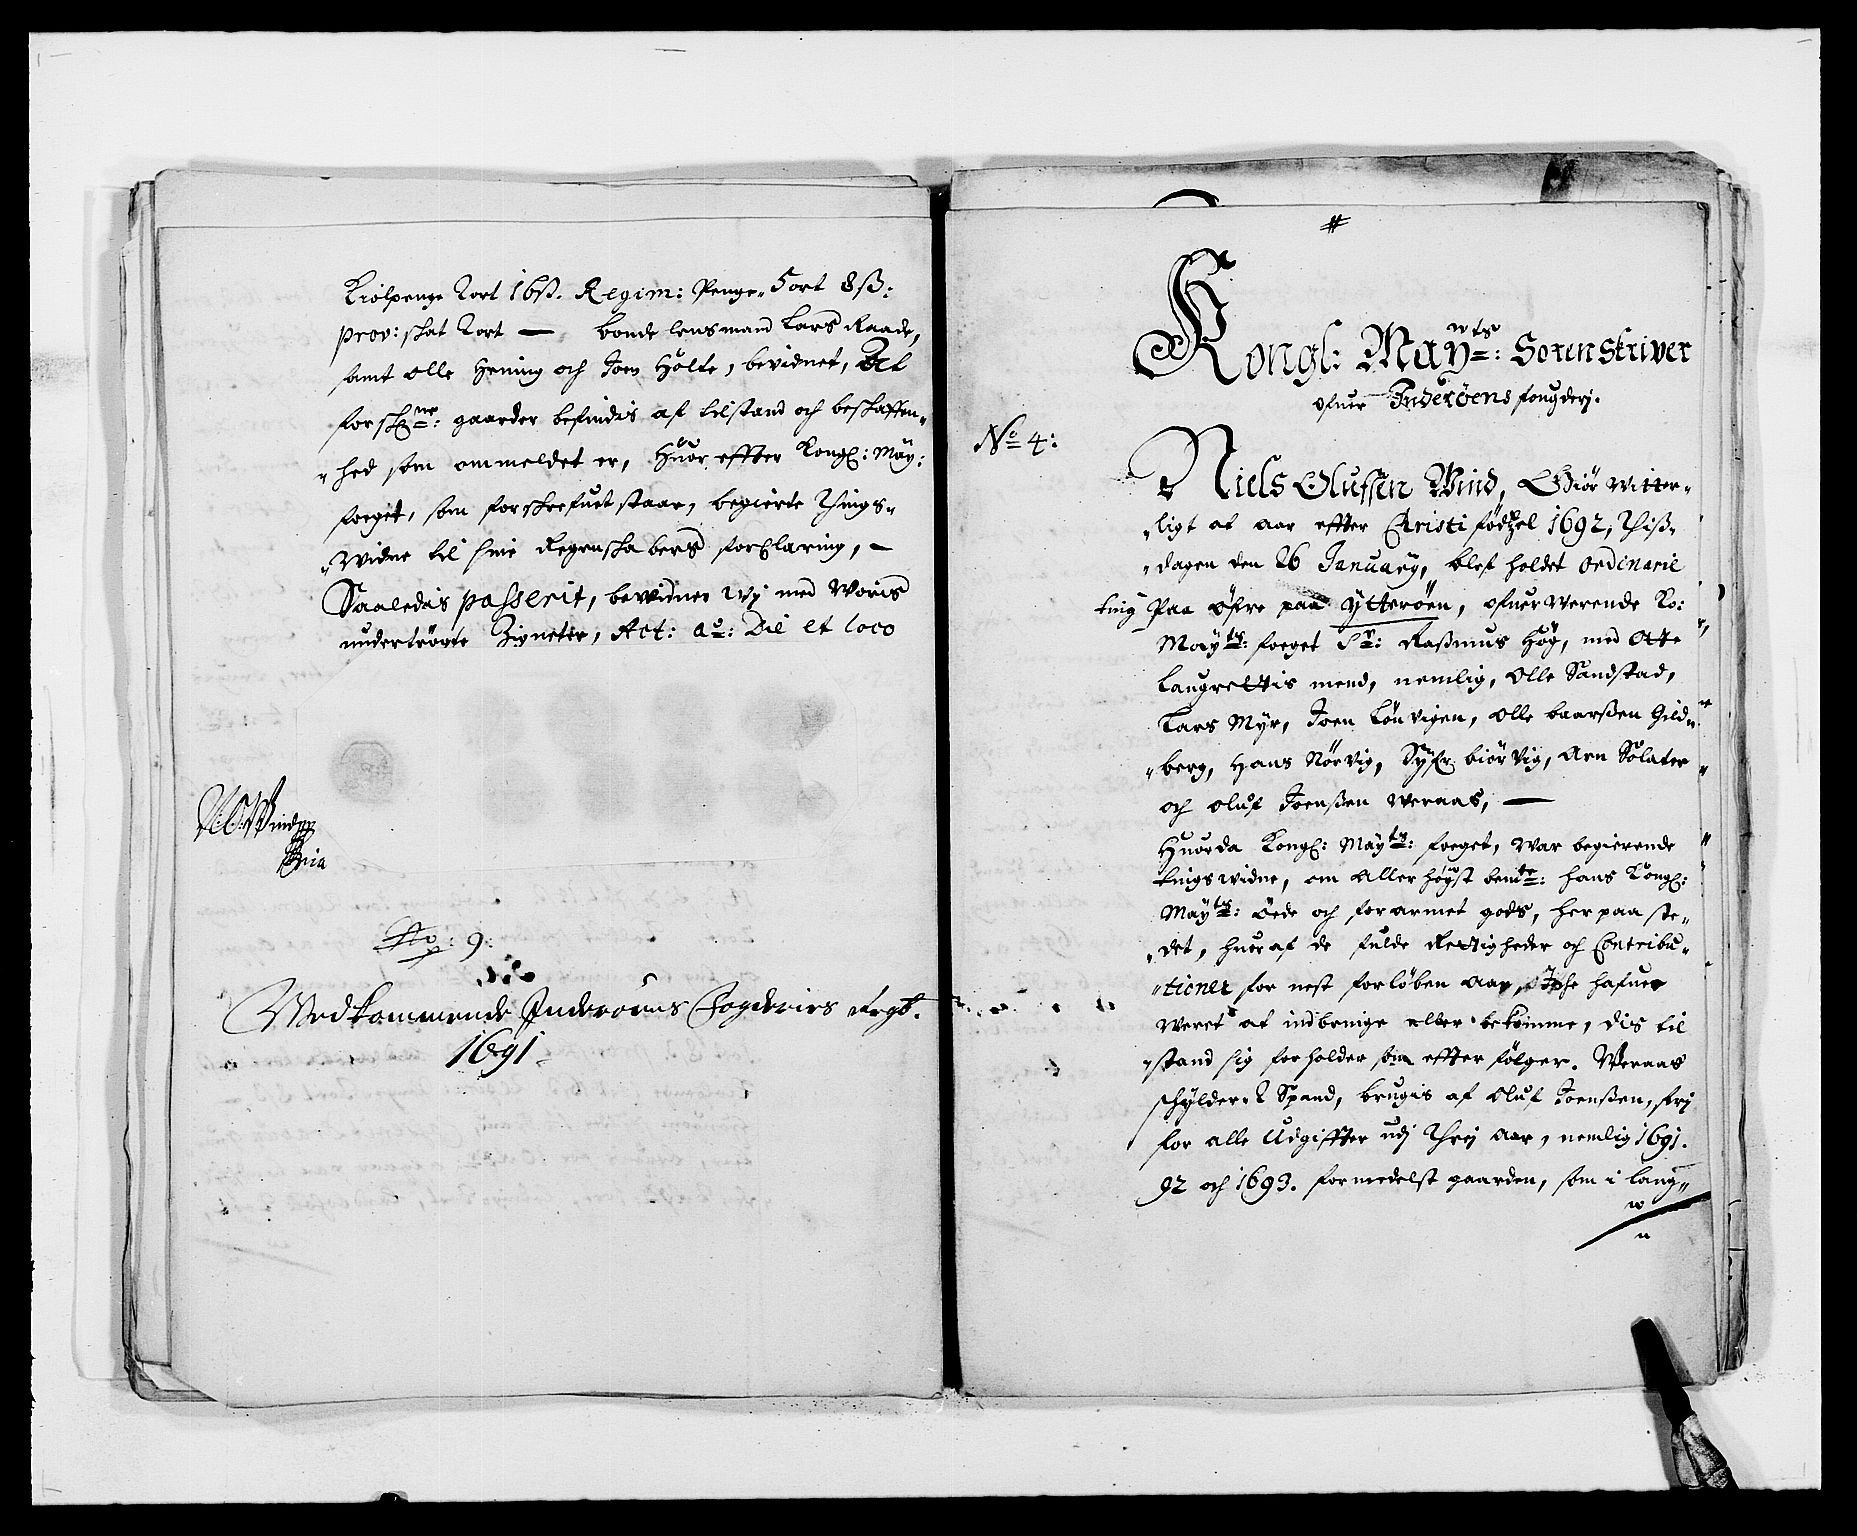 Kiølpenge 2ort 16ß. Regim: Penge 5ort 8ß:
prov: skat 2ort — bonde lensmand Lars Raade,
samt olle Hening och Joen Hølte, bevidnet, At
forschne: gaarder befindis af tilstand och beskaffen„
„hed som ommeldet er, Huor effter Kongl: May:
foeget, som forskrefuet staar, begierte Tings„
„widne til sine Regenskabers forClaring, —
Saaledis passerit, bewidner wj med Woris
undertrögte Zigneter, Act: au: Die et loco
N:O:Wind
Mpria
No: 9:
Wedkommende Inderøens Fogderies
1691
#
Kongl: Mayts: Sorenskriver
ofuer Inderøens fougderj.
No 4:
Niels Olufsen Wind, Giør Witter„
„ligt at aar effter Christi födzel 1692, Thiß„
„dagen den 26 January, blef holdet ordinarie
ting Paa öfre paa Ytterøen, ofuerwerende Ko:
Mayts: foeget Sr: Raßmus Høg, med Otte
Laugrettis mend, nemlig, Olle Sandstad,
Lars Myr, Joen Lönvigen, Olle baarßen Gild„
„berg, Hans Nörvig, Syfr biörvig, Arn Solater
och Oluf Joenßen Weraas, —
Huorda Kongl: Mayts: foeget, war begierende
tingswidne, om Allerhøyst bemte: hans Kongl:
Mayts: öede och forarmet gods, her paa ste„
„det, huer af de fulde Rettigheder och Contribu„
„tioner for nest forløben aar, Iche hafuer
weret at indbringe eller bekomme, dis til
„stand sig forholder som effter følger. Weraas
schylder 2 Spand, brugis af Oluf Joenßen, frj
for alle Udgiffter udj Threj aar, nemlig 1691.
92 och 1693. formedelst gaarden, som i lang„